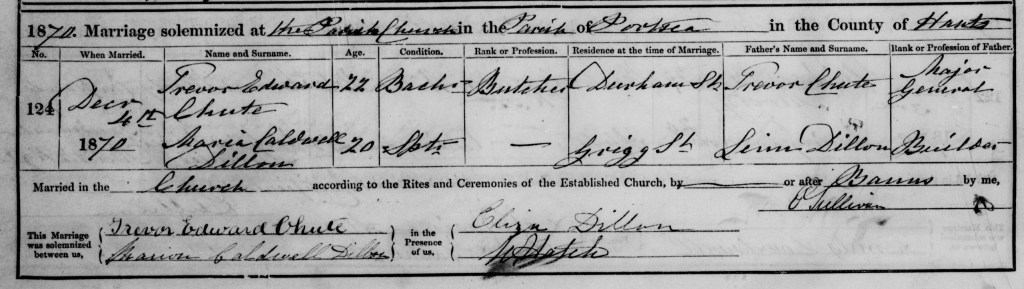 1870. Marriage solemnized at the Parish Church in the Parish of Portsea in the County of Hants
No. When Married. Name and Surname. Age. Condition. Rank or Profession. Residence at the time of Marriage. Father's Name and Surname. Rank or Profession of Father.
124 Decr 4th 1870 Trevor Edward Chute 22 Bachr Butcher Durham St Trevor Chute Major General
Maria Caldwell Dillon 20 Sptr — Grigg St Dillon Builder
Married in the Church according to the Rites and Ceremonies of the Established Church, by or after Banns by me,
O'Sullivan
This Marriage was solemnized between us, Trevor Edward Chute in the Presence of us, Eliza Dillon
Marion Caldwell Dillon